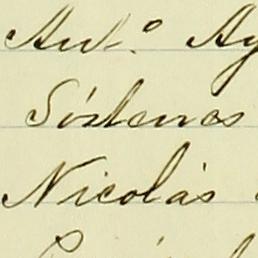 Ant.º Ay
Sóstenes
Nicolás